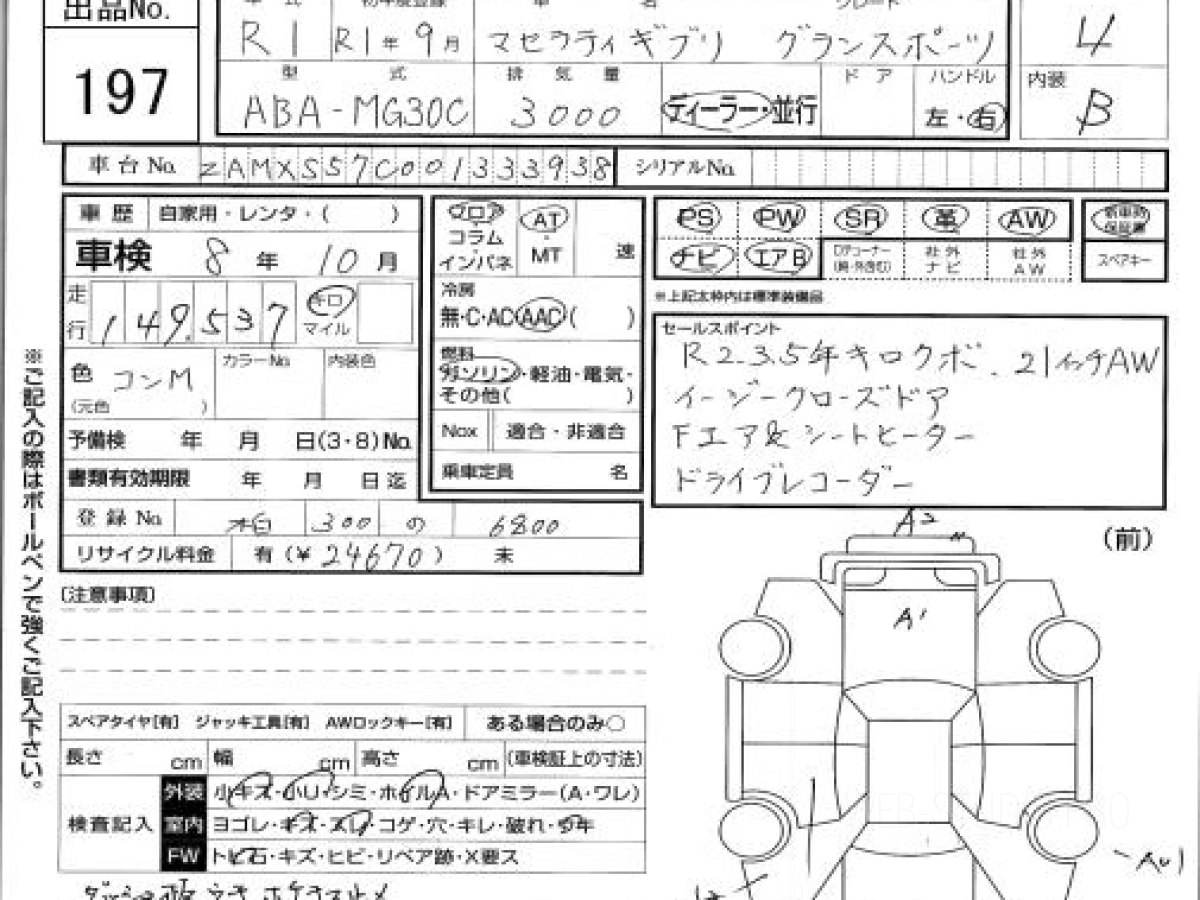 出品No.
197
R1 R1年9月 マセラティギブリ グランスポーツ
型式 排気量 ドア ハンドル
ABA-MG30C 3000 ディーラー・並行 左・右
4
内装
B
車台No. ZAMXS57C001333938 シリアルNo.
車歴 自家用・レンタ・( )
車検 8年10月
走行 149,537 キロ マイル
色 コンM カラーNo. 内装色
(元色 )
予備検 年 月 日(3・8)No.
書類有効期限 年 月 日迄
登録No. 300 の 6800
リサイクル料金 有(¥24670) 未
フロア コラム インパネ
AT・MT 速
冷房
無・C・AC・AAC( )
燃料
ガソリン・軽油・電気・
その他( )
Nox 適合・非適合
乗車定員 名
PS PW SR 革 AW 新車時保証書
ナビ エアB 社外ナビ 社外AW スペアキー
※上記太枠内は標準装備品
セールスポイント
R2.3.5年キロクボ、21インチAW
イージークローズドア
Fエア&シートヒーター
ドライブレコーダー
(前)
A2
A1
AU1
〔注意事項〕
スペアタイヤ[有] ジャッキ工具[有] AWロックキー[有] ある場合のみ○
長さ cm 幅 cm 高さ cm (車検証上の寸法)
検査記入
外装 小キズ・小U・シミ・ホイルA・ドアミラー(A・ワレ)
室内 ヨゴレ・キズ・スレ・コゲ・穴・キレ・破れ・少年
FW トビ石・キズ・ヒビ・リペア跡・X要ス
※ご記入の際はボールペンで強くご記入下さい。